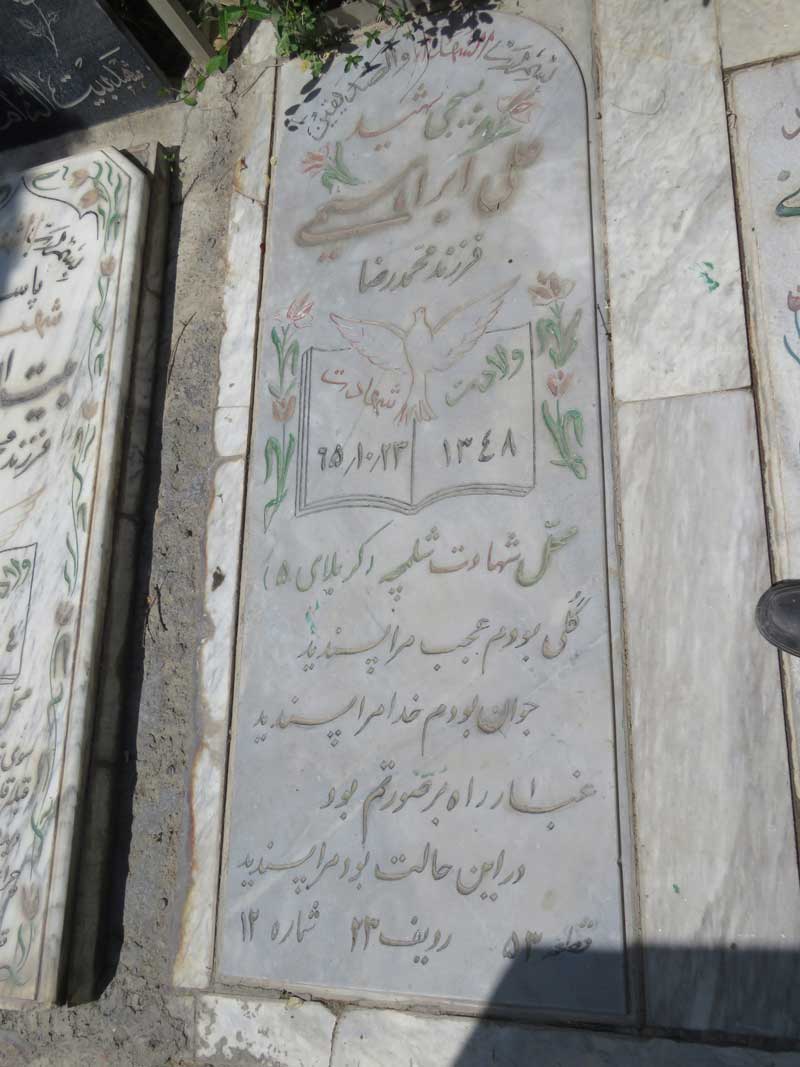 بسم رب الشهداء والصدیقین
بسیجی شهید
علی ابراهیمی
فرزند محمدرضا
ولادت
۱۳۴۸
شهادت
۹۵/۱۰/۲۳
محل شهادت شلمچه (کربلای ۵)
گلی بودم عجب مرا پسندید
جوان بودم خدا مرا پسندید
غبار راه بر صورتم بود
در این حالت بود مرا پسندید
قطعه ۵۳ ردیف ۲۳ شماره ۱۲
شهید
فرزند
ولادت
محل